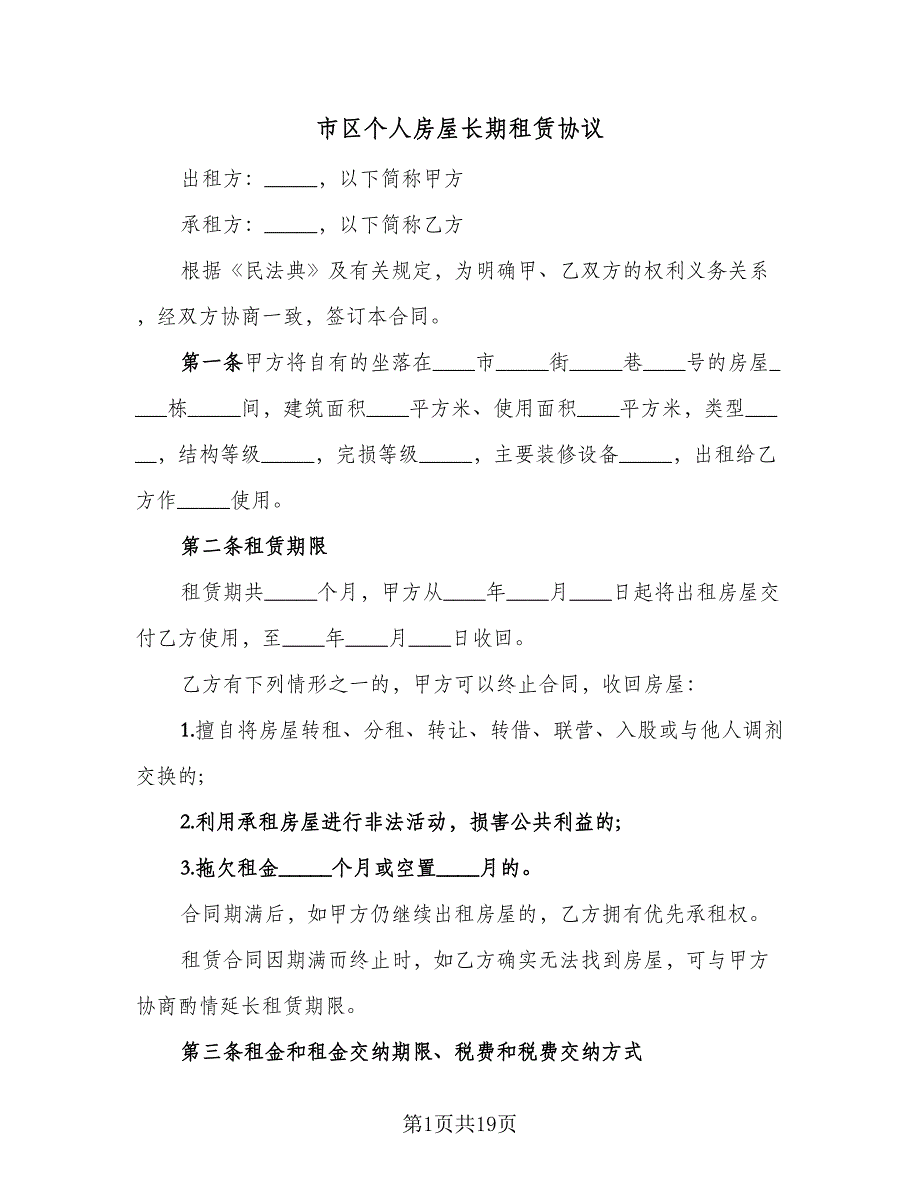 市区个人房屋长期租赁协议
出租方：_____，以下简称甲方
承租方：_____，以下简称乙方
根据《民法典》及有关规定，为明确甲、乙双方的权利义务关系
，经双方协商一致，签订本合同。
第一条甲方将自有的坐落在____市_____街_____巷____号的房屋_
___栋_____间，建筑面积____平方米、使用面积____平方米，类型___
__，结构等级_____，完损等级_____，主要装修设备_____，出租给乙
方作_____使用。
第二条租赁期限
租赁期共_____个月，甲方从____年____月____日起将出租房屋交
付乙方使用，至____年____月____日收回。
乙方有下列情形之一的，甲方可以终止合同，收回房屋：
1.擅自将房屋转租、分租、转让、转借、联营、入股或与他人调剂
交换的;
2.利用承租房屋进行非法活动，损害公共利益的;
3.拖欠租金_____个月或空置____月的。
合同期满后，如甲方仍继续出租房屋的，乙方拥有优先承租权。
租赁合同因期满而终止时，如乙方确实无法找到房屋，可与甲方
协商酌情延长租赁期限。
第三条租金和租金交纳期限、税费和税费交纳方式
第1页共19页